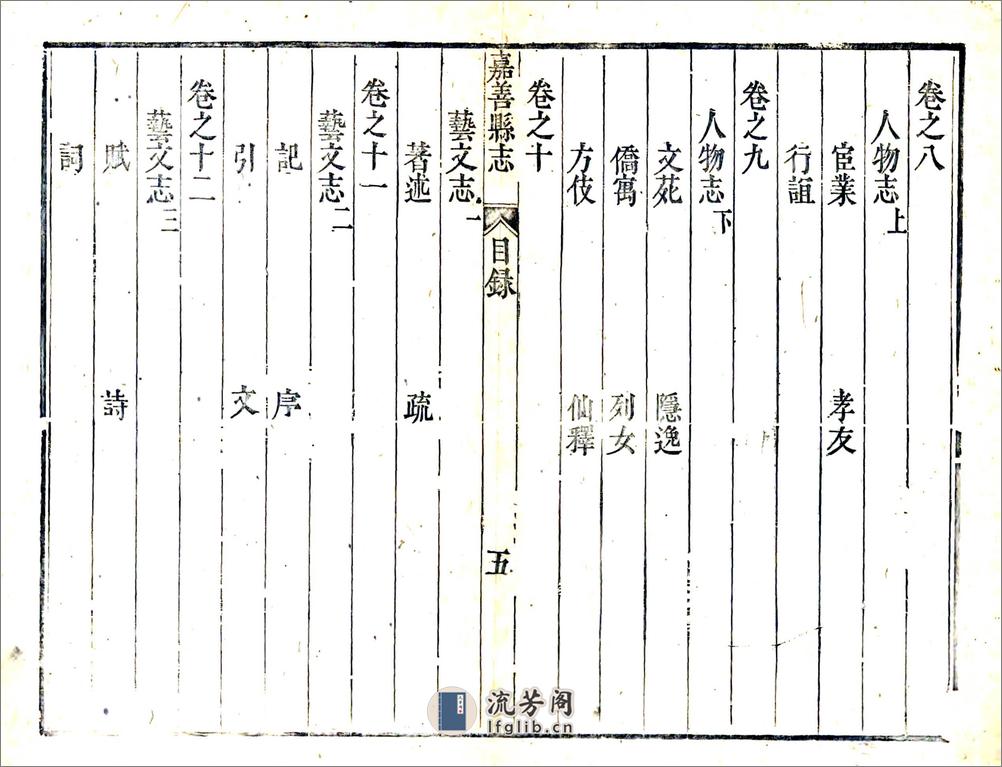 卷之八
人物志上
宦業 孝友
行誼
卷之九
人物志下
文苑 隱逸
僑寓 列女
方伎 仙釋
卷之十
嘉善縣志 目録 五
藝文志一
著述 疏
卷之十一
藝文志二
記 序
引 文
卷之十二
藝文志三
賦 詩
詞
流芳阁
lfglib.cn